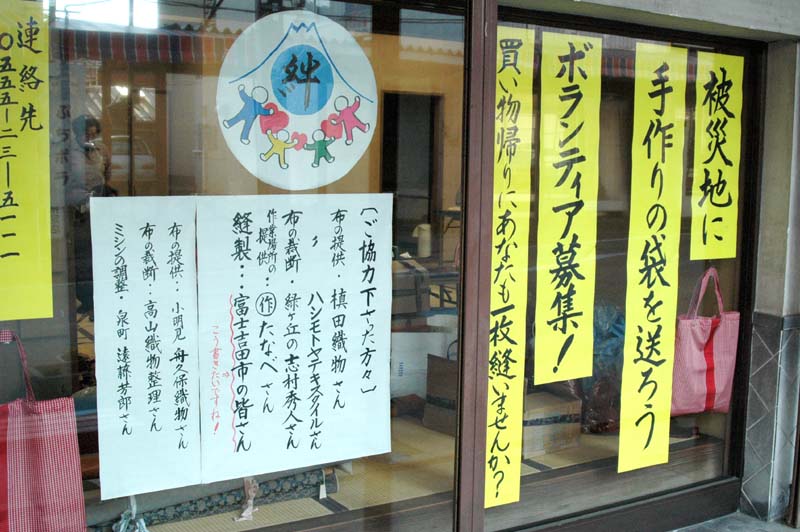 被災地に
手作りの袋を送ろう
ボランティア募集!
買い物帰りにあなたも一枚縫いませんか?
絆
〔ご協力下さった方々〕
布の提供・槙田織物さん
〃 ハシモトヤテキスタイルさん
布の裁断・緑ヶ丘の志村秀人さん
作業場所の提供・・㊢たなべさん
縫製・・・富士吉田市の皆さん
こう書きたいですね!
布の提供・小明見 舟久保織物さん
布の裁断・高山織物整理さん
ミシンの調整・泉町 遠藤芳郎さん
連絡先
〇五五五ー二三ー五一一一